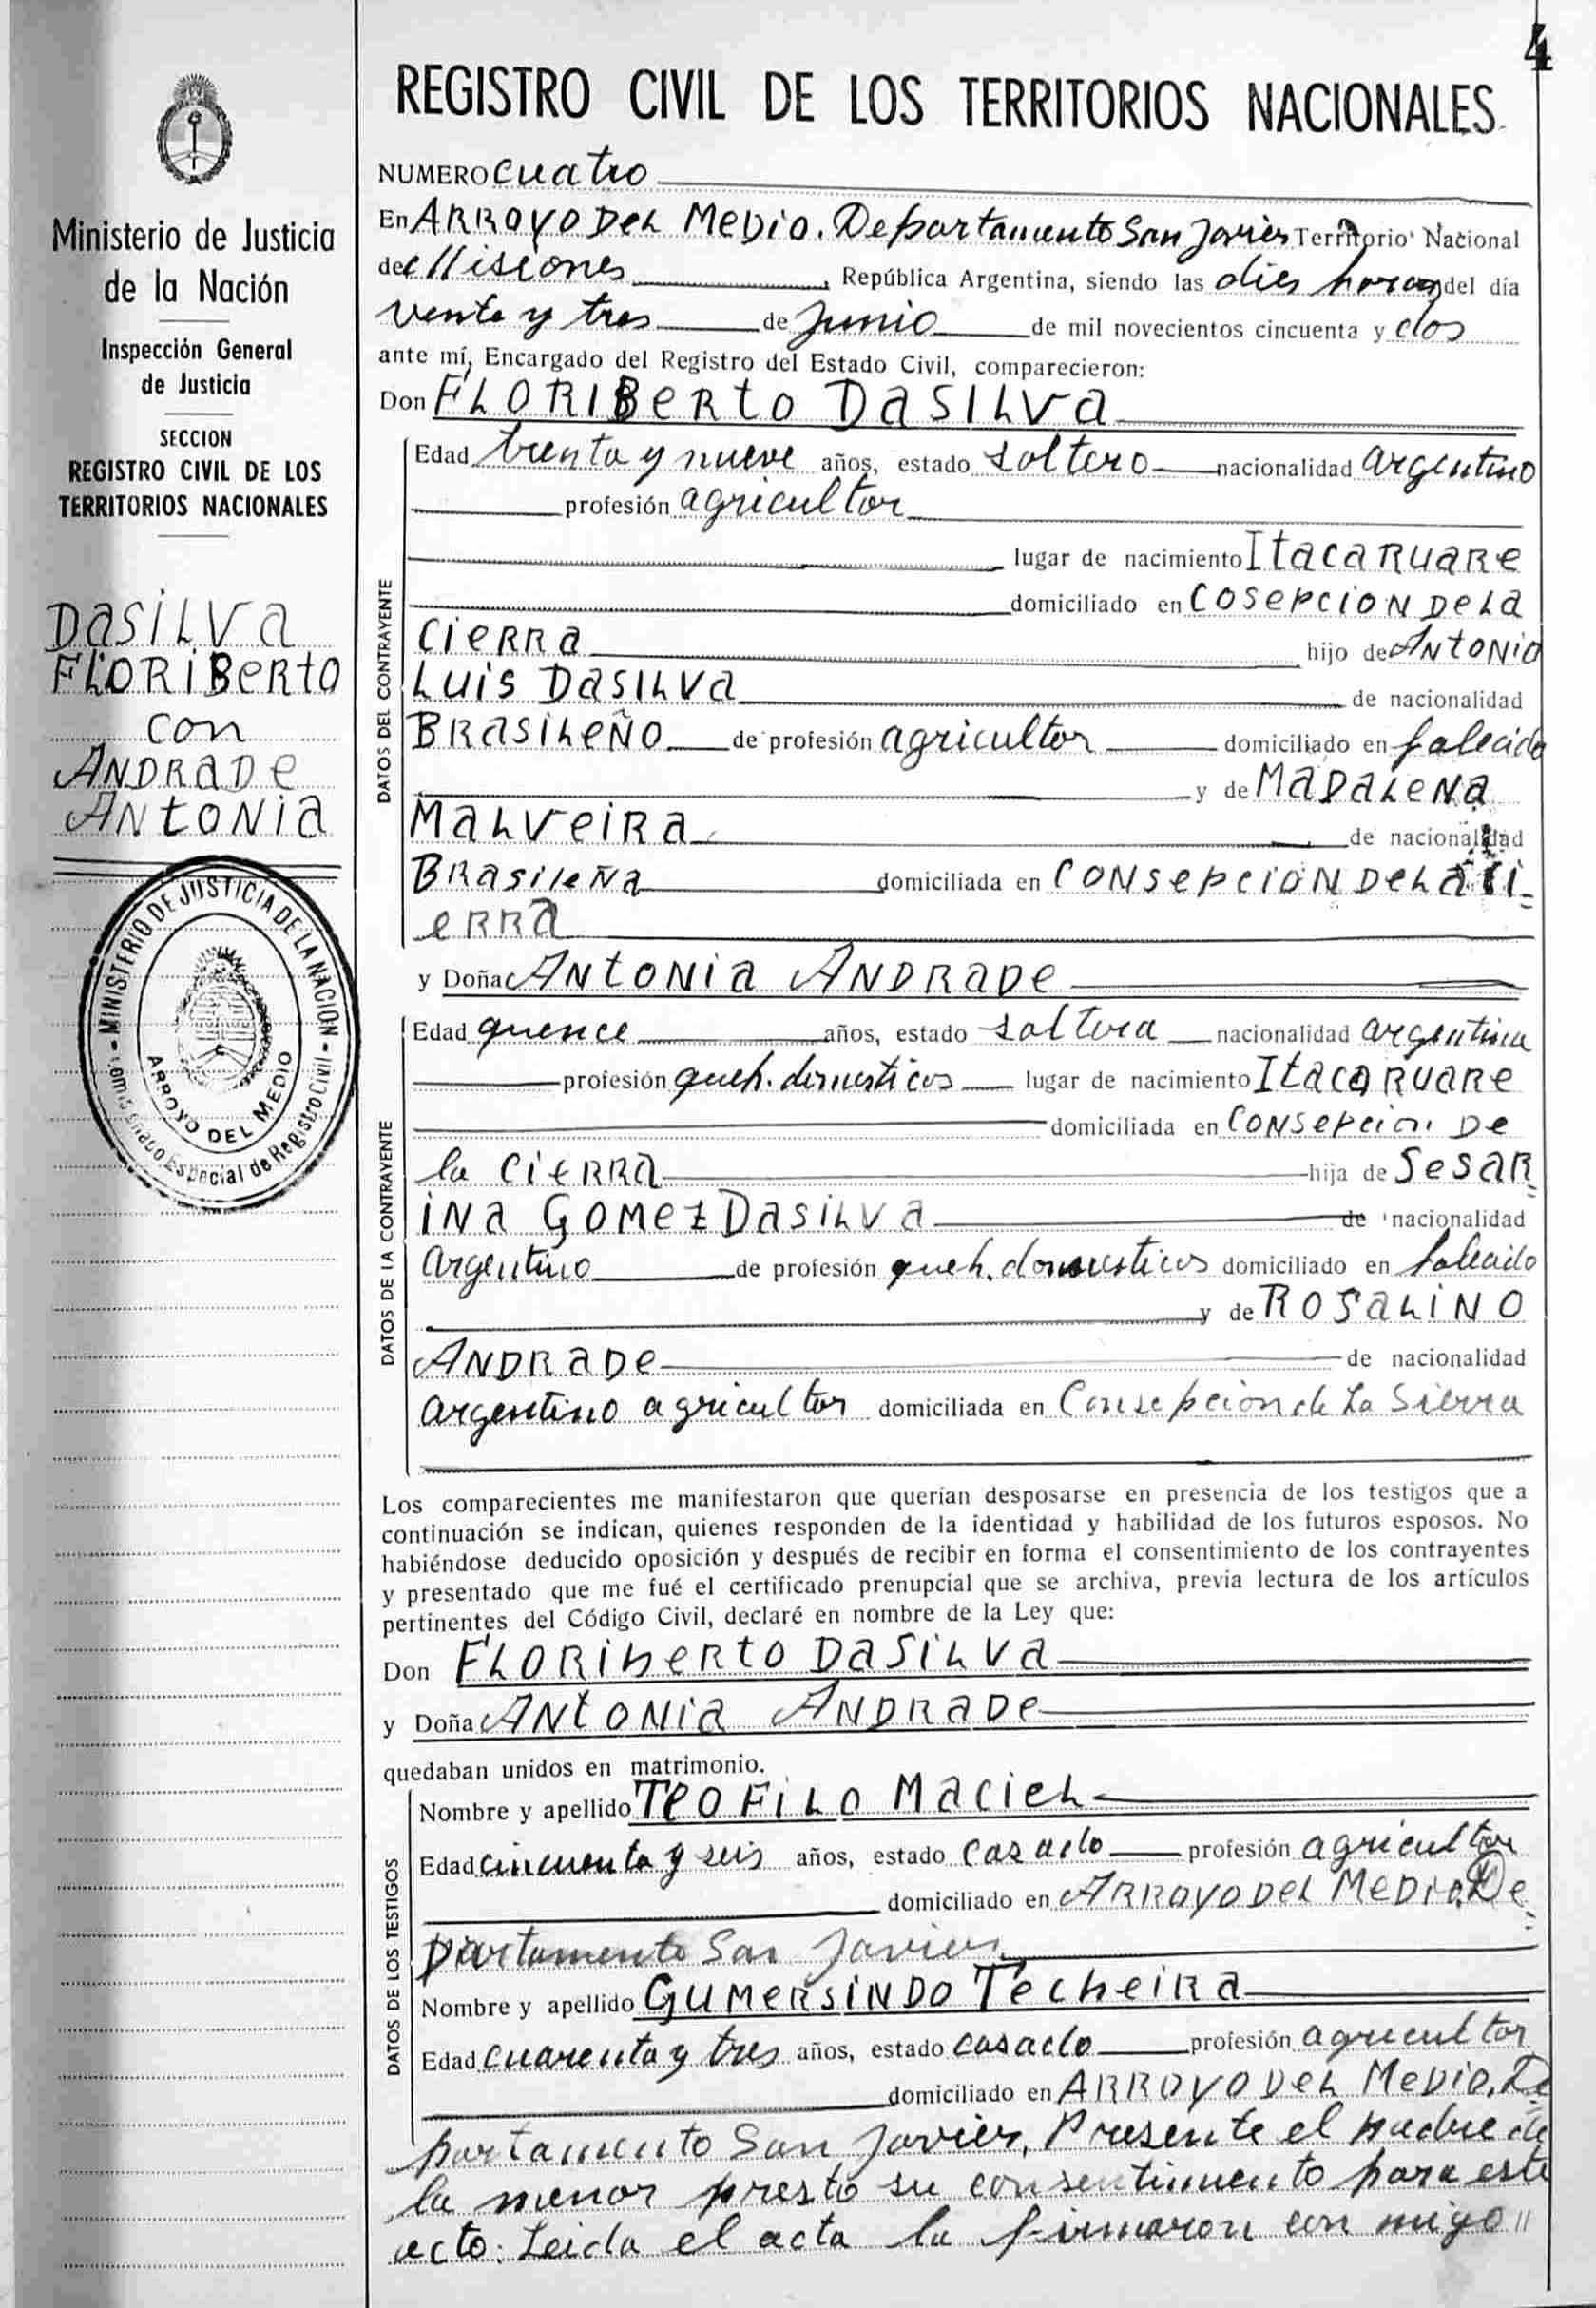 4
REGISTRO CIVIL DE LOS TERRITORIOS NACIONALES
Ministerio de Justicia
de la Nación
Inspección General
de Justicia
SECCION
REGISTRO CIVIL DE LOS
TERRITORIOS NACIONALES
Dasilva
Floriberto
con
Andrade
Antonia
MINISTERIO DE JUSTICIA DE LA NACION
Especial de Registro Civil
ARROYO DEL MEDIO
NUMERO cuatro
En Arroyo Del Medio. Departamento San Javier Territorio Nacional
de Misiones, República Argentina, siendo las dies horas del día
vente y tres de Junio de mil novecientos cincuenta y dos
ante mí, Encargado del Registro del Estado Civil, comparecieron:
Don Floriberto Dasilva
DATOS DEL CONTRAYENTE
Edad trenta y nueve años, estado soltero nacionalidad argentino
profesión agricultor
lugar de nacimiento Itacaruare
domiciliado en Cosepcion Dela
Cierra hijo de Antonio
Luis Dasilva de nacionalidad
Brasileño de profesión agricultor domiciliado en falecido
y de Madalena
Malveira de nacionalidad
Brasileña domiciliada en Consepcion Dela Ci-
erra
y Doña Antonia Andrade
DATOS DE LA CONTRAYENTE
Edad quence años, estado soltera nacionalidad argentina
profesión queh. domesticos lugar de nacimiento Itacaruare
domiciliada en Consepcion De
la Cierra hija de Sesar=
ina Gomez Dasilva de nacionalidad
argentino de profesión queh. domesticos domiciliado en falecido
y de Rosalino
Andrade de nacionalidad
argentino agricultor domiciliada en Consepcion de La Sierra
Los comparecientes me manifestaron que querían desposarse en presencia de los testigos que a
continuación se indican, quienes responden de la identidad y habilidad de los futuros esposos. No
habiéndose deducido oposición y después de recibir en forma el consentimiento de los contrayentes
y presentado que me fué el certificado prenupcial que se archiva, previa lectura de los artículos
pertinentes del Código Civil, declaré en nombre de la Ley que:
Don Floriberto Dasilva
y Doña Antonia Andrade
quedaban unidos en matrimonio.
DATOS DE LOS TESTIGOS
Nombre y apellido Teofilo Maciel
Edad cincuenta y seis años, estado casado profesión agricultor
domiciliado en Arroyo Del Medio. De=
partamento San Javier
Nombre y apellido Gumersindo Techeira
Edad cuarenta y tres años, estado casado profesión agricultor
domiciliado en Arroyo Del Medio. De
partamento San Javier, Presente el padre de
la menor presto su consentimiento para este
acto. Leida el acta la firmaron con migo //